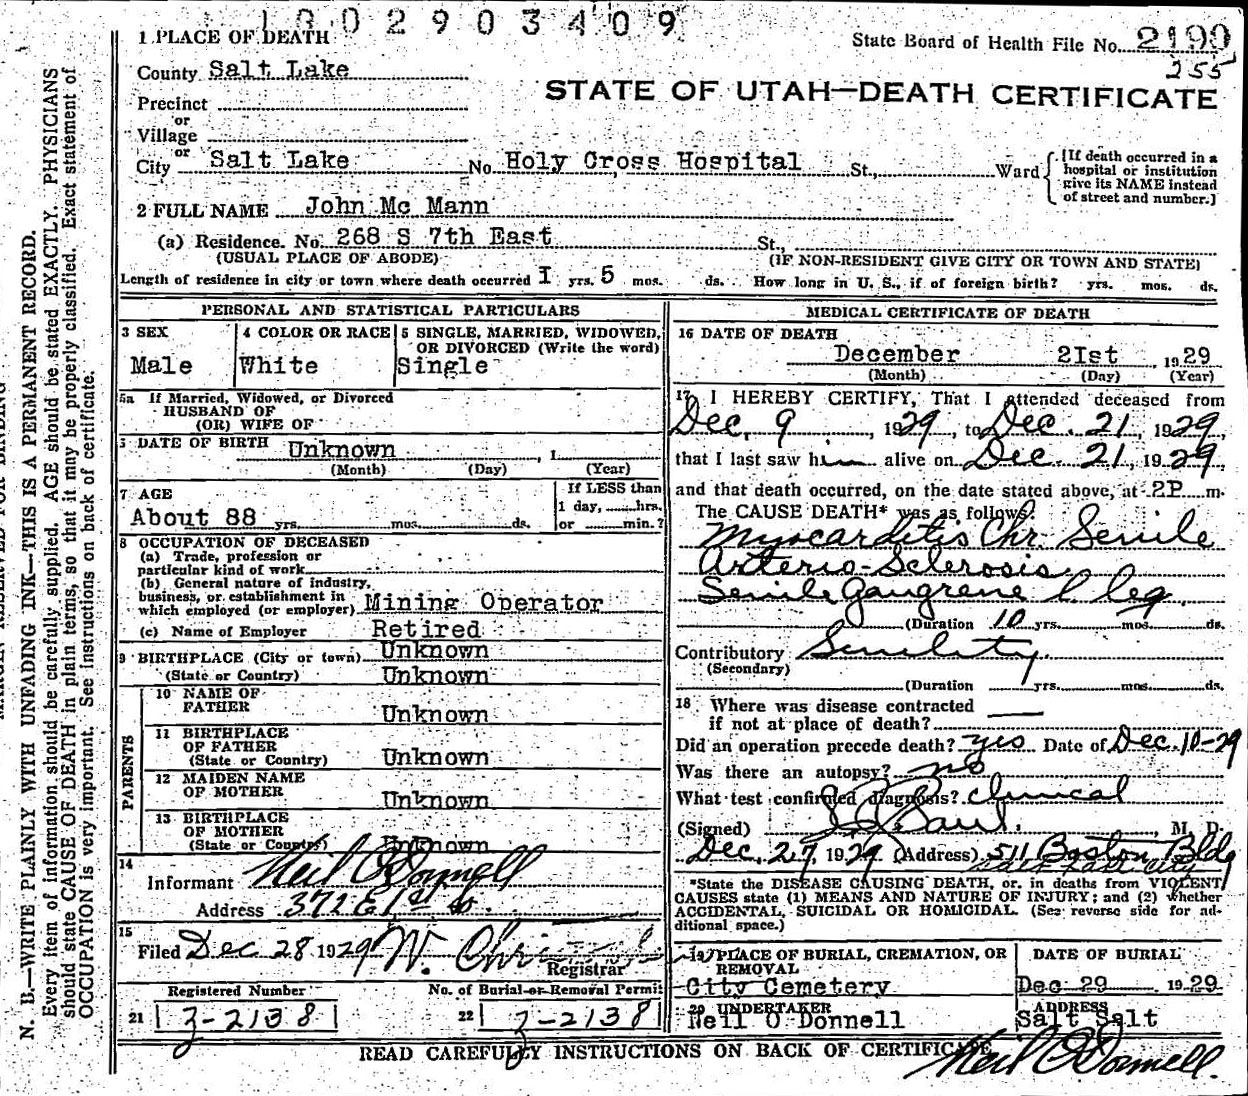 1002903409
State Board of Health File No. 2190
255
STATE OF UTAH—DEATH CERTIFICATE
1 PLACE OF DEATH
County Salt Lake
Precinct
or
Village
or
City Salt Lake No. Holy Cross Hospital St., Ward
[If death occurred in a
hospital or institution
give its NAME instead
of street and number.]
2 FULL NAME John Mc Mann
(a) Residence. No. 268 S 7th East St.,
(USUAL PLACE OF ABODE) (IF NON-RESIDENT GIVE CITY OR TOWN AND STATE)
Length of residence in city or town where death occurred I yrs. 5 mos. ds. How long in U. S., if of foreign birth? yrs. mos. ds.
PERSONAL AND STATISTICAL PARTICULARS
3 SEX
Male
4 COLOR OR RACE
White
5 SINGLE, MARRIED, WIDOWED,
OR DIVORCED (Write the word)
Single
5a If Married, Widowed, or Divorced
HUSBAND OF
(OR) WIFE OF
DATE OF BIRTH Unknown , 1
(Month) (Day) (Year)
7 AGE
About 88 yrs. mos. ds.
If LESS than
1 day, hrs.
or min.?
8 OCCUPATION OF DECEASED
(a) Trade, profession or
particular kind of work
(b) General nature of industry,
business, or establishment in
which employed (or employer) Mining Operator
(c) Name of Employer Retired
9 BIRTHPLACE (City or town) Unknown
(State or Country) Unknown
PARENTS
10 NAME OF
FATHER Unknown
11 BIRTHPLACE
OF FATHER
(State or Country) Unknown
12 MAIDEN NAME
OF MOTHER Unknown
13 BIRTHPLACE
OF MOTHER
(State or Country) Unknown
14
Informant Neil O'Donnell
Address 372 E 1st So.
15
Filed Dec 28 1929 W.
Registrar
Registered Number No. of Burial or Removal Permit
21 3-2138 22 3-2138
MEDICAL CERTIFICATE OF DEATH
16 DATE OF DEATH
December 2Ist 1929
(Month) (Day) (Year)
17 I HEREBY CERTIFY, That I attended deceased from
Dec. 9, 1929, to Dec. 21, 1929,
that I last saw him alive on Dec. 21, 1929
and that death occurred, on the date stated above, at 2P m.
The CAUSE DEATH* was as follows:
Myocarditis Chr. Senile
Arterio-Sclerosis
Senile Gangrene l leg
(Duration 10 yrs. mos. ds.
Contributory Senility
(Secondary)
(Duration yrs. mos. ds.
18 Where was disease contracted
if not at place of death?
Did an operation precede death? yes Date of Dec. 10-29
Was there an autopsy? no
What test confirmed diagnosis? clinical
(Signed) Paul, M. D.
Dec. 27, 1929 (Address) 511 Boston Bldg
Salt Lake City
*State the DISEASE CAUSING DEATH, or, in deaths from VIOLENT
CAUSES state (1) MEANS AND NATURE OF INJURY; and (2) whether
ACCIDENTAL, SUICIDAL OR HOMICIDAL. (See reverse side for ad-
ditional space.)
19 PLACE OF BURIAL, CREMATION, OR
REMOVAL
City Cemetery
DATE OF BURIAL
Dec 29 1929
20 UNDERTAKER
Neil O Donnell
ADDRESS
Salt Salt
READ CAREFULLY INSTRUCTIONS ON BACK OF CERTIFICATE
Neil O'Donnell.
N. B.—WRITE PLAINLY WITH UNFADING INK—THIS IS A PERMANENT RECORD.
Every item of information should be carefully supplied. AGE should be stated EXACTLY. PHYSICIANS
should state CAUSE OF DEATH in plain terms, so that it may be properly classified. Exact statement of
OCCUPATION is very important. See instructions on back of certificate.